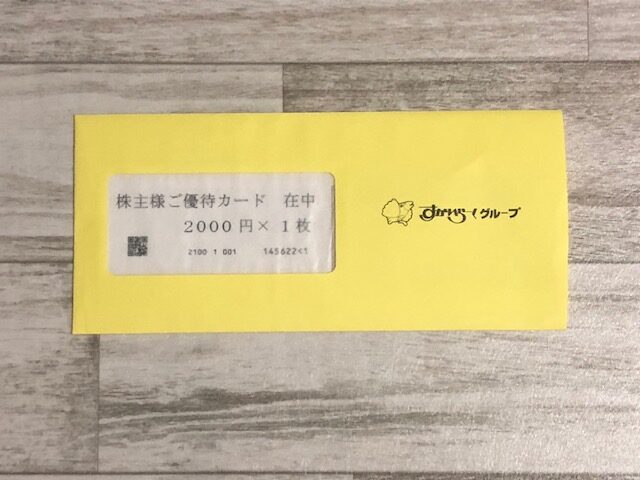 株主様ご優待カード 在中
2000円×1枚
2100 1 001 145622<1
すかいらーくグループ